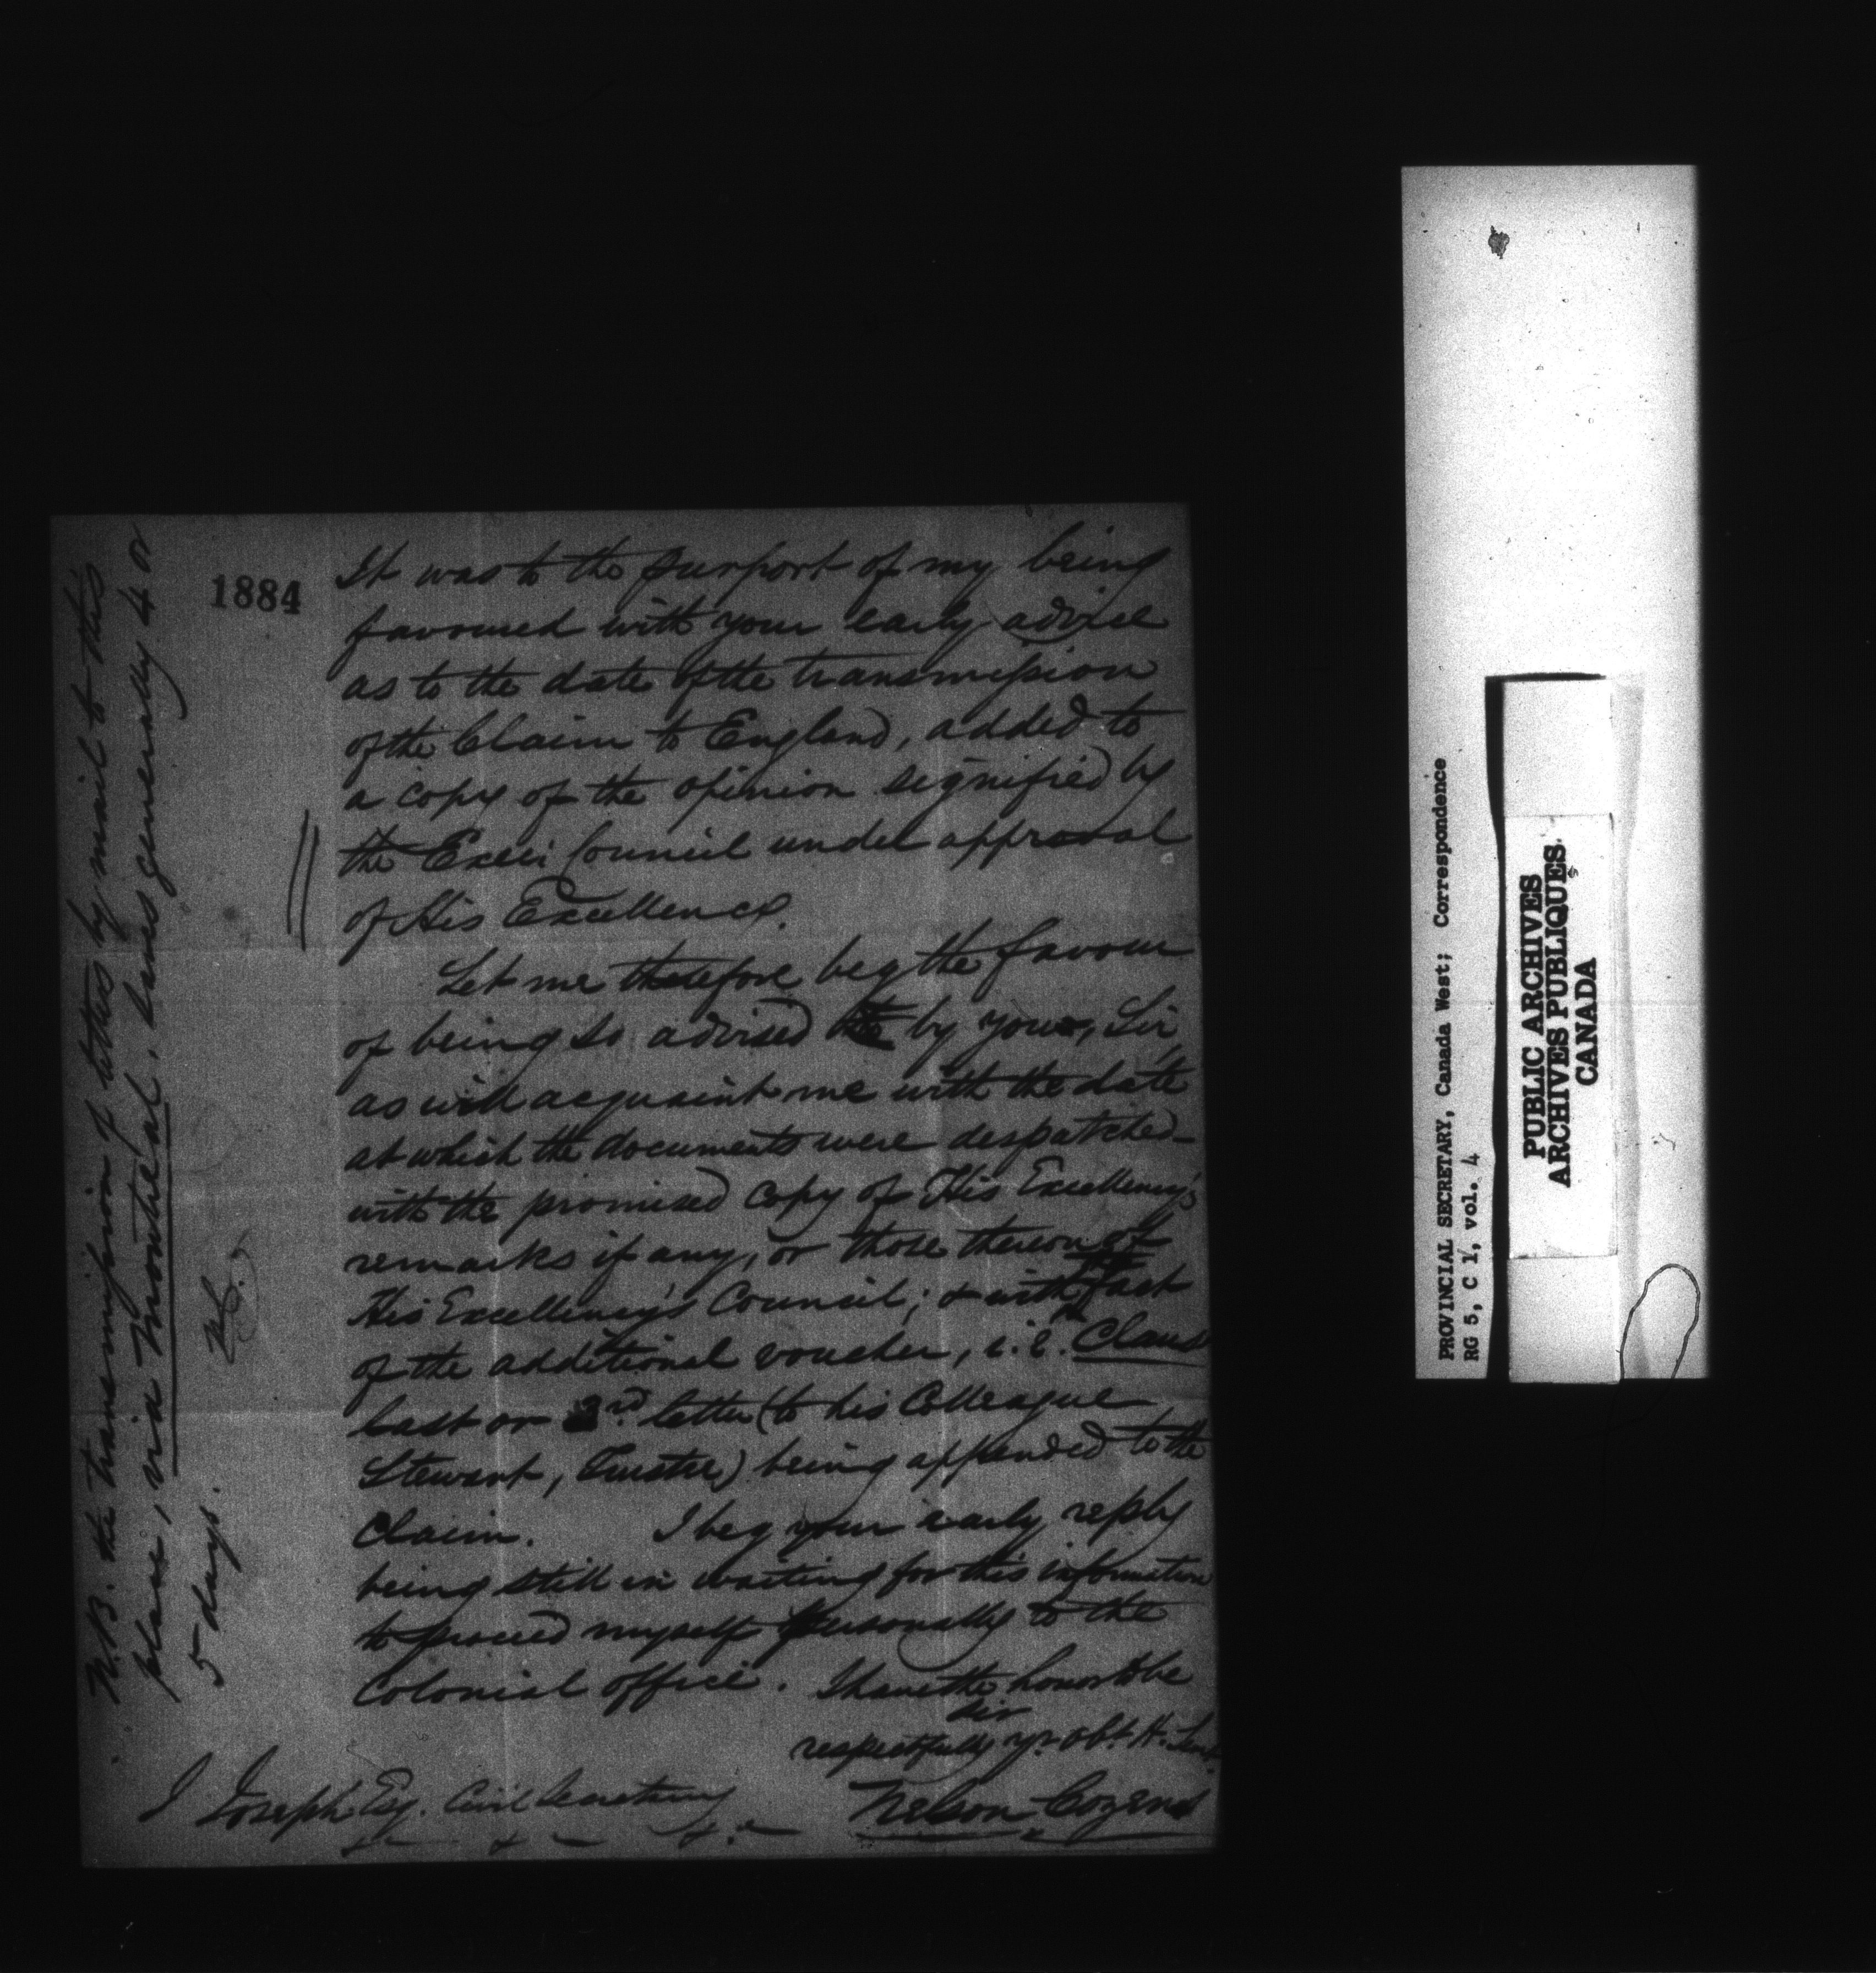 1884
It was to the purport of my being
favoured with your early advice
as to the date of the transmission
of the Claim to England, added to
a copy of the opinion signified by
the Exec: Council under approval
of His Excellency.
Let me therefore beg the favour
of being so advised by your, Sir
as will acquaint me with the date
at which the documents were despatched
with the promised copy of His Excellency's
remarks if any, or those thereon of
His Excellency's Council; & with fact
of the additional voucher, i.e. Claus
last or 3rd letter (to his Colleague
Stewart, Trustee) being appended to the
Claim. I beg your early reply
being still in waiting for this information
to proceed myself personally to the
Colonial office. I have the honor to be
Sir
respectfully yr. obt. H. Servt.
Nelson Cozens
J Joseph Esq. Civil Secretary
N.B. the transmission of letters by mail to this
place, via Montreal, takes generally 4 or
5 days.
PROVINCIAL SECRETARY, Canada West; Correspondence
RG 5, C 1, vol. 4
PUBLIC ARCHIVES
ARCHIVES PUBLIQUES
CANADA